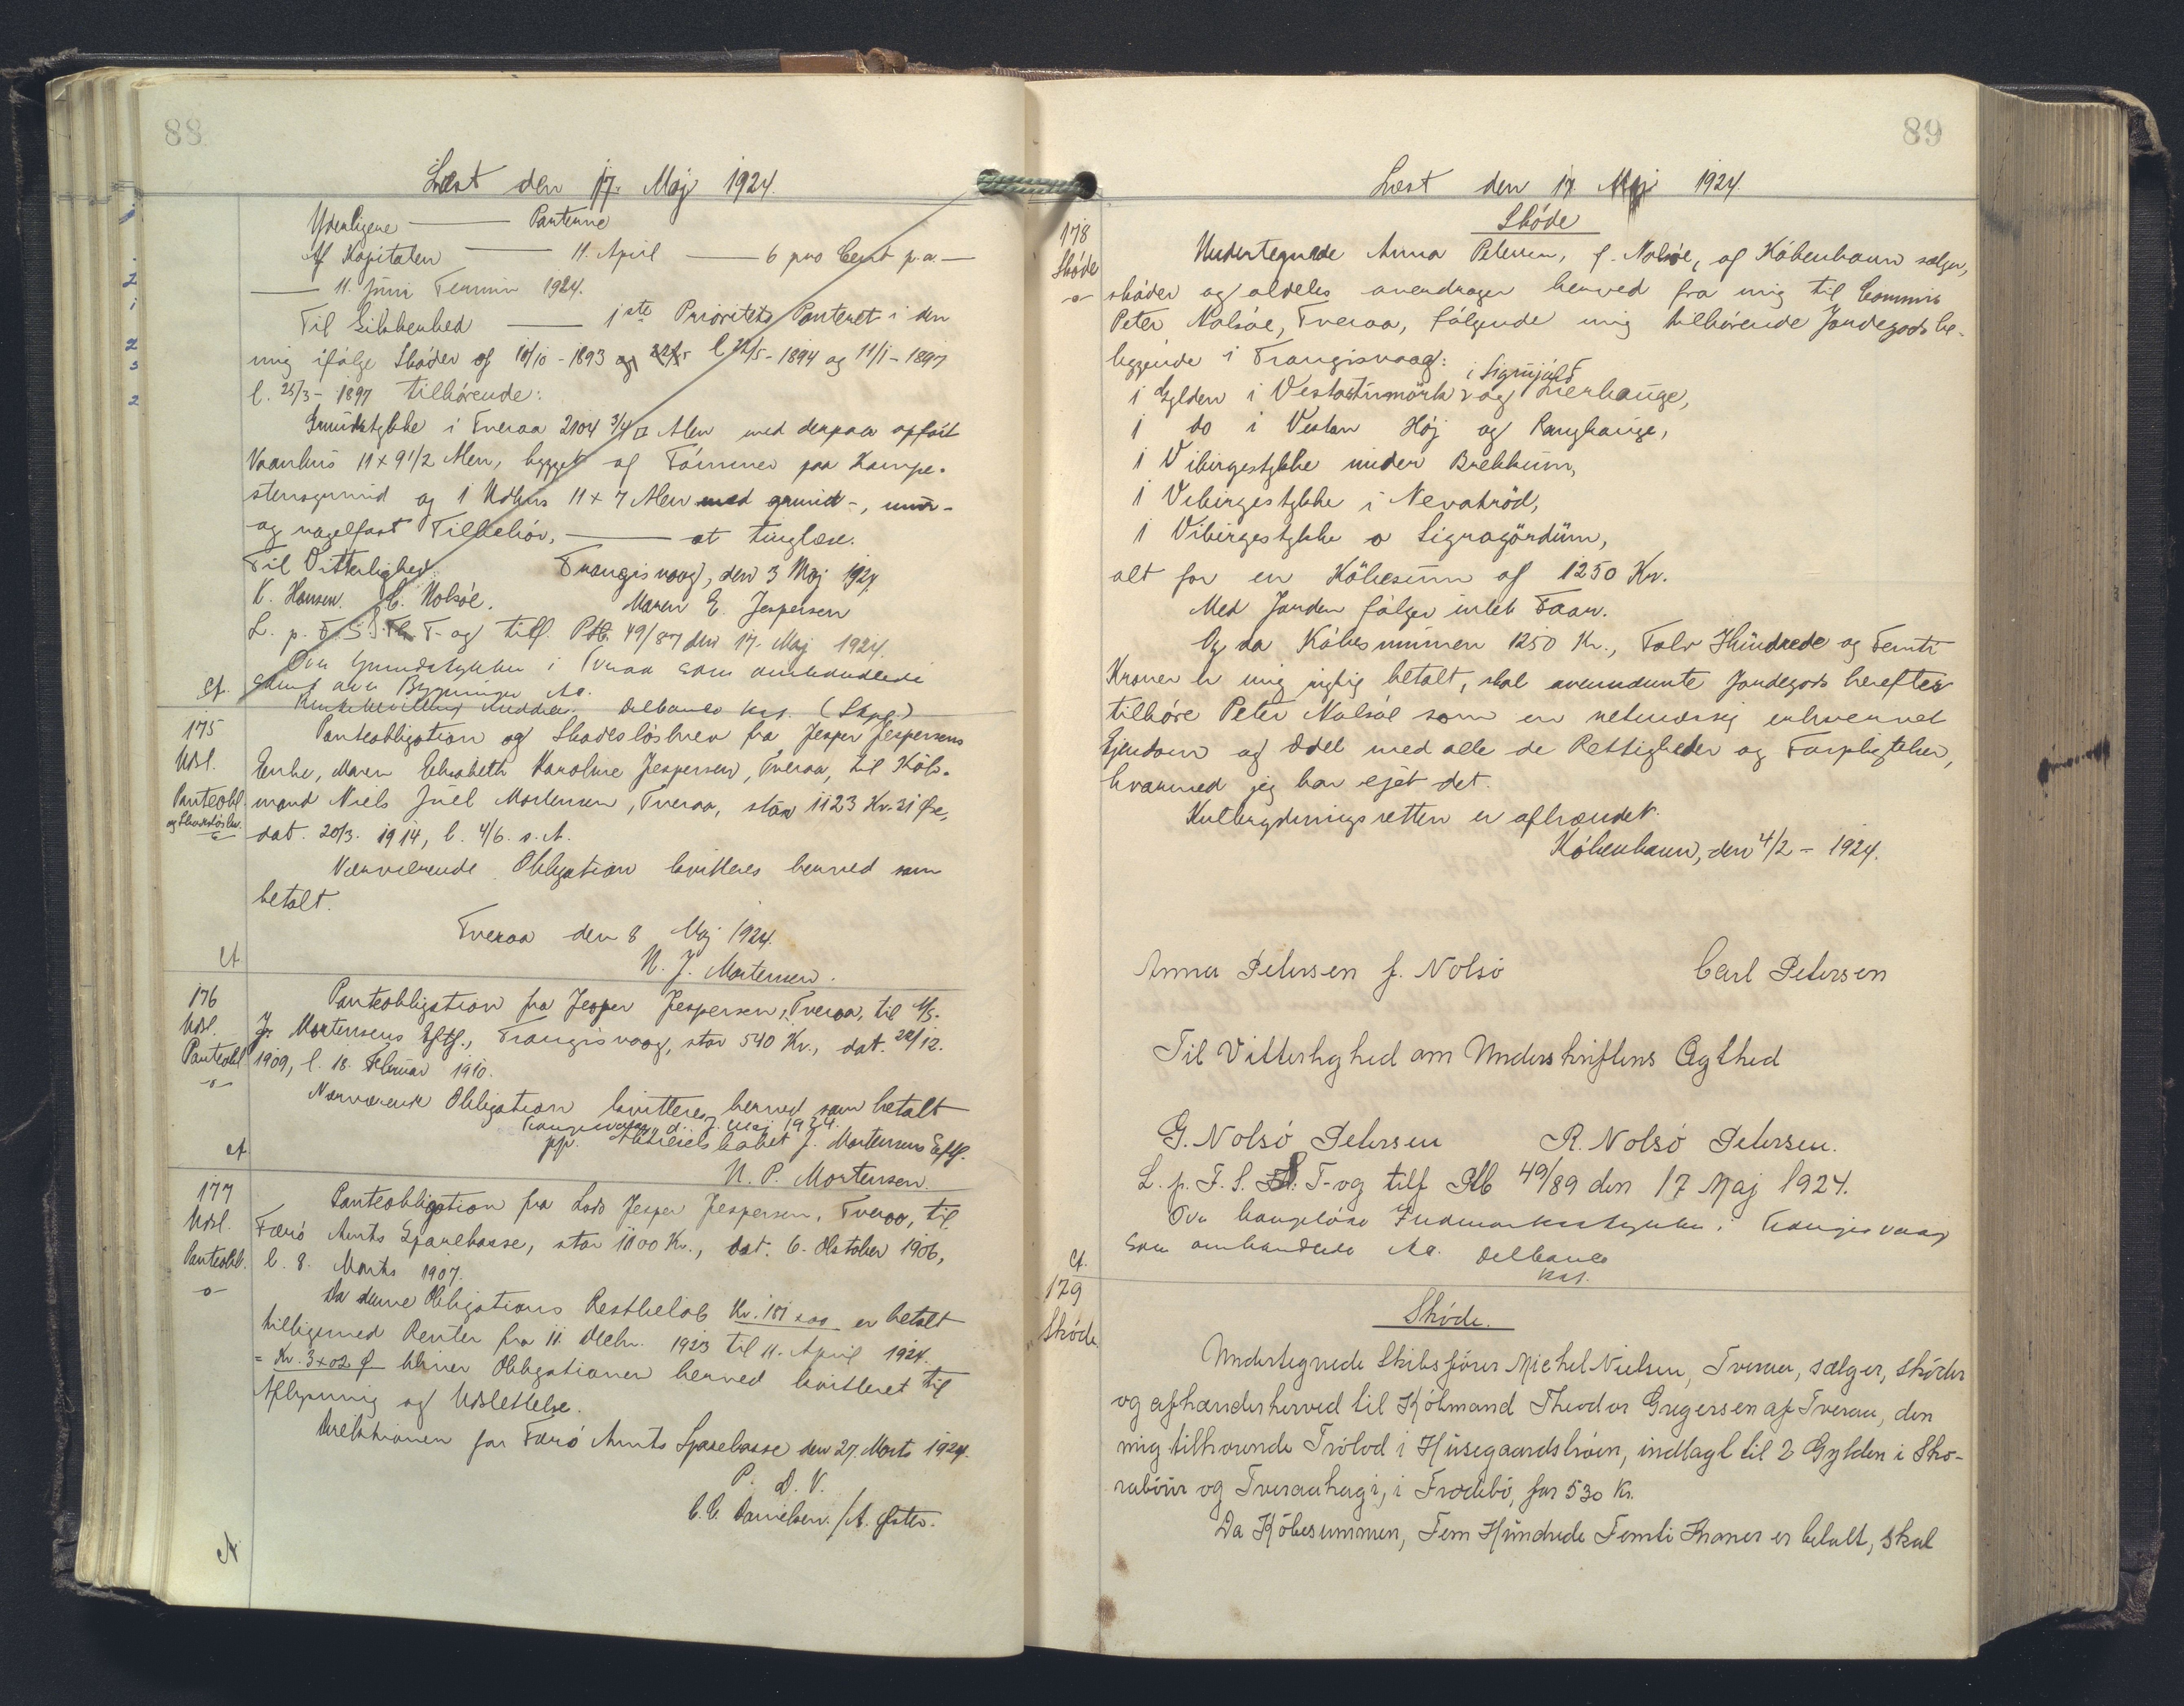 88
Læst den 17. Maj 1924.
Yderligere — Panterne
Af Kapitalen — 11. April — 6 pro Cent p.a. —
— 11. Juni Termin 1924.
Til Sikkerhed — 1ste Prioritets Panteret i den
mig ifølge Skøder af 10/10 - 1893 og l 22/5 - 1894 og 11/1 - 1897
l. 25/3 - 1897 tilhørende:
Grundstykke i Tveraa 2104 3/4 □ Alen med derpaa opført
Vaanhus 11 x 9 1/2 Alen, bygget af Tømmer paa Kampe-
stensgrund og 1 Udhus 11 x 7 Alen med grund-, mur-
og nagelfast Tilbehør, — at tinglæse.
Til Vitterlighed: Trangisvaag, den 3 Maj 1924
K. Hansen. C. Nolsøe. Maren E. Jespersen
L. p. F. S. T- og tilf. Ptb. 49/87 den 17. Maj 1924.
Over Grundstykker i Tveraa som ombandlede
samt over Bygninger
Delbanco kst. (Skpl.)
Ct.
175
Udsl.
Panteobl.
og Skadesløsbr.
Panteobligation og Skadesløsbrev fra Jesper Jespersens
Enke, Maren Elisabeth Karoline Jespersen, Tveraa, til Køb-
mand Niels Juel Mortensen, Tveraa, stor 1123 Kr. 21 Øre,
dat. 20/3. 1914, l. 4/6. s. A.
Nærværende Obligation kvitteres herved som
betalt.
Tveraa den 8 Maj 1924.
N. J. Mortensen.
Ct
176
Udsl.
Panteobl
-o-
Panteobligation fra Jesper Jespersen, Tveraa, til A/S.
J. Mortensens Eftf., Trangisvaag, stor 540 Kr., dat. 22/12.
1909, l. 18. Februar 1910.
Nærværende Obligation kvitteres herved som betalt
Trangisvaag d. 7. Maj 1924.
pp. Aktieselskabet J. Mortensens Eftf.
N. P. Mortensen.
Ct
177
Udsl.
Panteobl.
-o-
Panteobligation fra Lods Jesper Jespersen, Tveraa, til
Færø Amts Sparekasse, stor 1100 Kr., dat. 6. Oktober 1906,
l. 8. Marts 1907.
Da denne Obligations Restbeløb Kr. 181 x 00 er betalt
tilligemed Renter fra 11. Decbr. 1923 til 11. April 1924.
= Kr. 3 x 02 Ø bliver Obligationen herved kvitteret til
Aflysning og Udslettelse.
Direktionen for Færø Amts Sparekasse den 27. Marts 1924.
P. D. V.
C. C. Danielsen. / A. Øster.
89
Læst den 17. Maj 1924.
178
Skøde
-o-
Skøde
Undertegnede Anna Petersen, f. Nolsøe, af København sælger,
skøder og aldeles overdrager herved fra mig til Commis
Peter Nolsøe, Tveraa, følgende mig tilhørende Jordegods be-
liggende i Trangisvaag:
i Signujáld
1 Gylden i Vestastumörk og Lierhauge,
1 do i Vestan Høj og Ranghauge,
1 Vibirgestykke under Brekkum,
1 Vibirgestykke i Nevatrød,
1 Vibirgestykke o Signagördum,
alt for en Købesum af 1250 Kr.
Med Jorden følger intet Faar.
Og da Købesummen 1250 Kr., Tolv Hundrede og Femti
Kroner er mig rigtig betalt, skal ovennævnte Jordegods herefter
tilhøre Peter Nolsøe som en retmæssig erhvervet
Ejendom og Odel med alle de Rettigheder og Forpligtelser,
hvormed jeg har ejet det.
Kulbrydningsretten er afhændet.
København, den 4/2 - 1924.
Anna Petersen f. Nolsö Carl Petersen
Til Vitterlighed om Underskriftens Ægthed
G. Nolsö Petersen R. Nolsö Petersen.
L. p. F. S. T- og tilf Ptb 49/89 den 17 Maj 1924.
Over hauglöse Indmarksstykker i Trangisvaag
som ombandlede Delbanco
kst.
Ct.
179
Skøde
Skøde.
Undertegnede Skibsfører Michel Nielsen, Tveraa, sælger, skøder
og afhænder herved til Købmand Theodor Gregersen af Tveraa, den
mig tilhørende Trølod i Húsegaardstróin, indlagt til 2 Gylden i Sko-
rabøur og Tveraahagi, i Frodebö, for 530 Kr.
Da Købesummen, Fem Hundrede Femti Kroner er betalt, skal